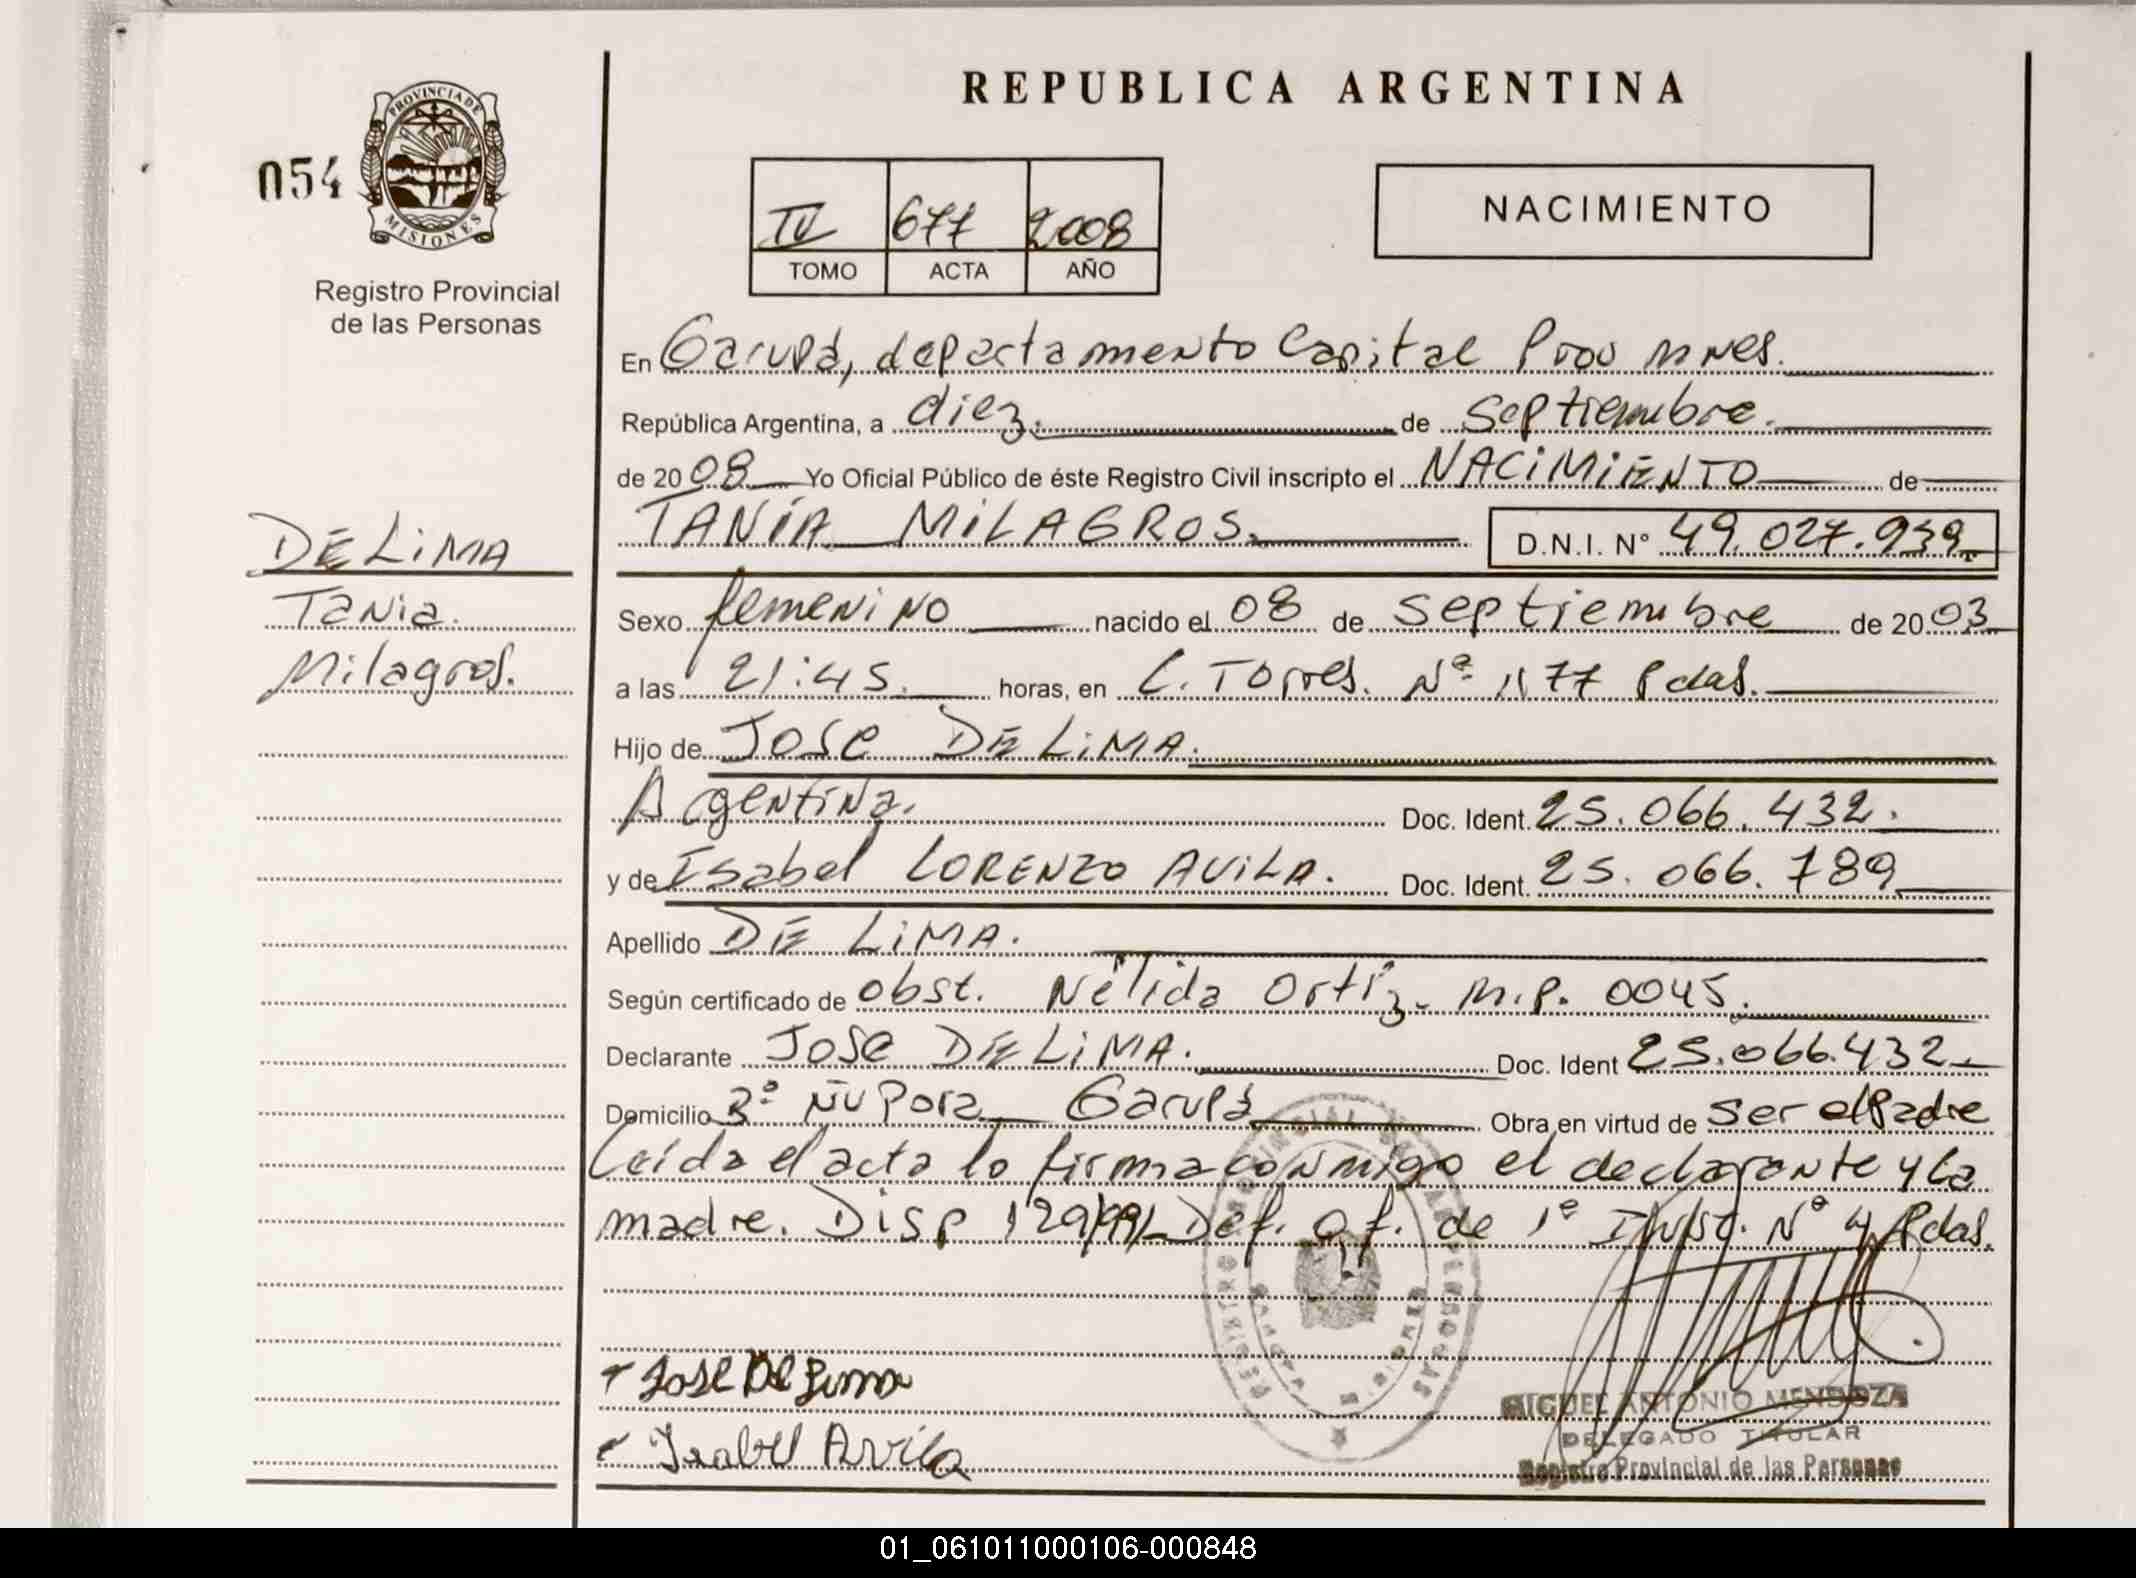 REPUBLICA ARGENTINA
054
PROVINCIA DE
MISIONES
Registro Provincial
de las Personas
IV 677 2008
TOMO ACTA AÑO
NACIMIENTO
En Garupá, departamento Capital Prov mnes.
República Argentina, a diez. de septiembre.
de 2008 Yo Oficial Público de éste Registro Civil inscripto el NACIMIENTO de
TANIA MILAGROS. D.N.I. N° 49.027.939
DE LIMA
Tania.
Milagros.
Sexo femenino nacido el 08 de septiembre de 2003
a las 21:45. horas, en C. Torres. Nº 1177 Pdas.
Hijo de Jose DE LIMA.
Argentina. Doc. Ident. 25.066.432.
y de Isabel LORENZO AVILA. Doc. Ident. 25.066.789
Apellido DE LIMA.
Según certificado de obst. Nélida Ortiz. M.P. 0045.
Declarante Jose DE LIMA. Doc. Ident 25.066.432
Domicilio Bº ÑU Pora Garupá Obra en virtud de ser el Padre
Leída el acta lo firma conmigo el declarante y la
madre. Disp 129/99/ Def. Of. de 1º Inst. Nº 4 Pdas.
REGISTRO PROVINCIAL DE LAS PERSONAS
Jose De Lima
Isabel Avila
MIGUEL ANTONIO MENDOZA
DELEGADO TITULAR
Registro Provincial de las Personas
01_061011000106-000848